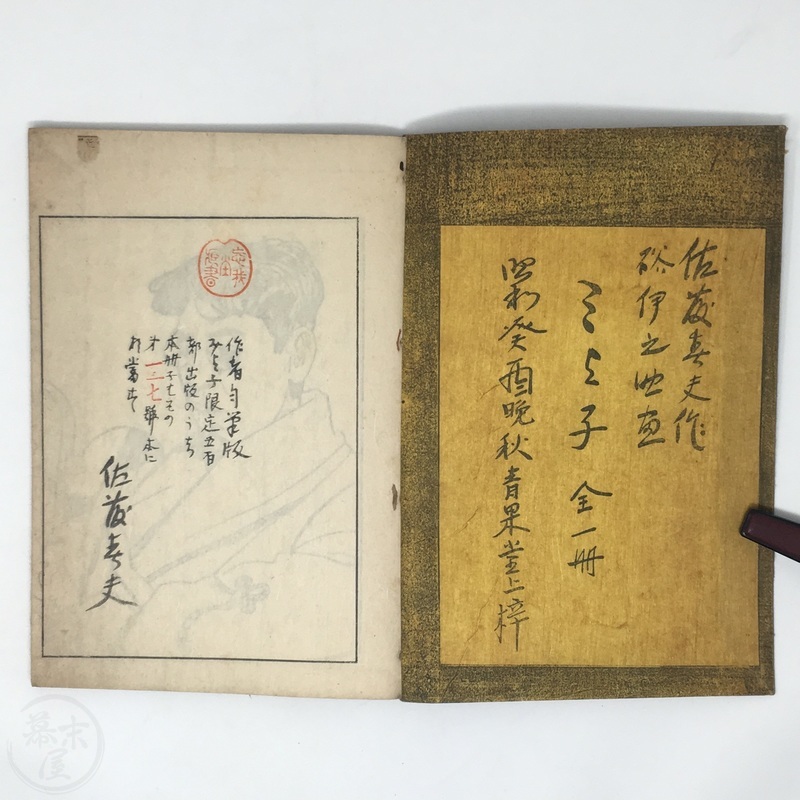 佐藤春夫作
硲伊之助画
ミよ子 全一冊
昭和癸酉晩秋青果堂上梓
作者自筆版
みよ子限定五百
部出版のうち
本冊子はその
第一二七號本に
相當す
佐藤春夫
幕末屋